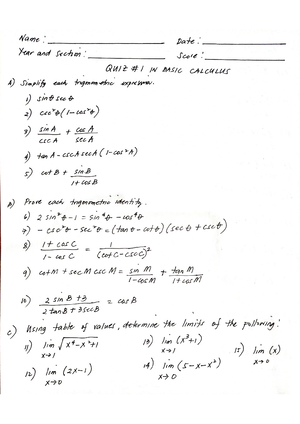 Name: Date:
Year and Section: Score:
QUIZ #1 IN BASIC CALCULUS
A) Simplify each trigonometric expression.
1) sinθ secθ
2) csc²θ (1-cos²θ)
3) sin A / csc A + cos A / sec A
4) tan A - csc A sec A (1-cos²A)
5) cot B + sin B / 1+cos B
B) Prove each trigonometric identity.
6) 2 sin²θ - 1 = sin⁴θ - cos⁴θ
7) - csc²θ - sec²θ = (tanθ - cotθ) (secθ + cscθ)
8) 1 + cos C / 1 - cos C = 1 / (cot C - csc C)²
9) cot M + sec M csc M = sin M / 1-cos M + tan M / 1+cos M
10) 2 sin B + 3 / 2 tan B + 3 sec B = cos B
C) Using table of values, determine the limits of the following:
11) lim x→1 √x⁴-x²+1 13) lim x→1 (x³+1) 15) lim x→0 (x)
12) lim x→0 (2x-1) 14) lim x→0 (5-x-x²)